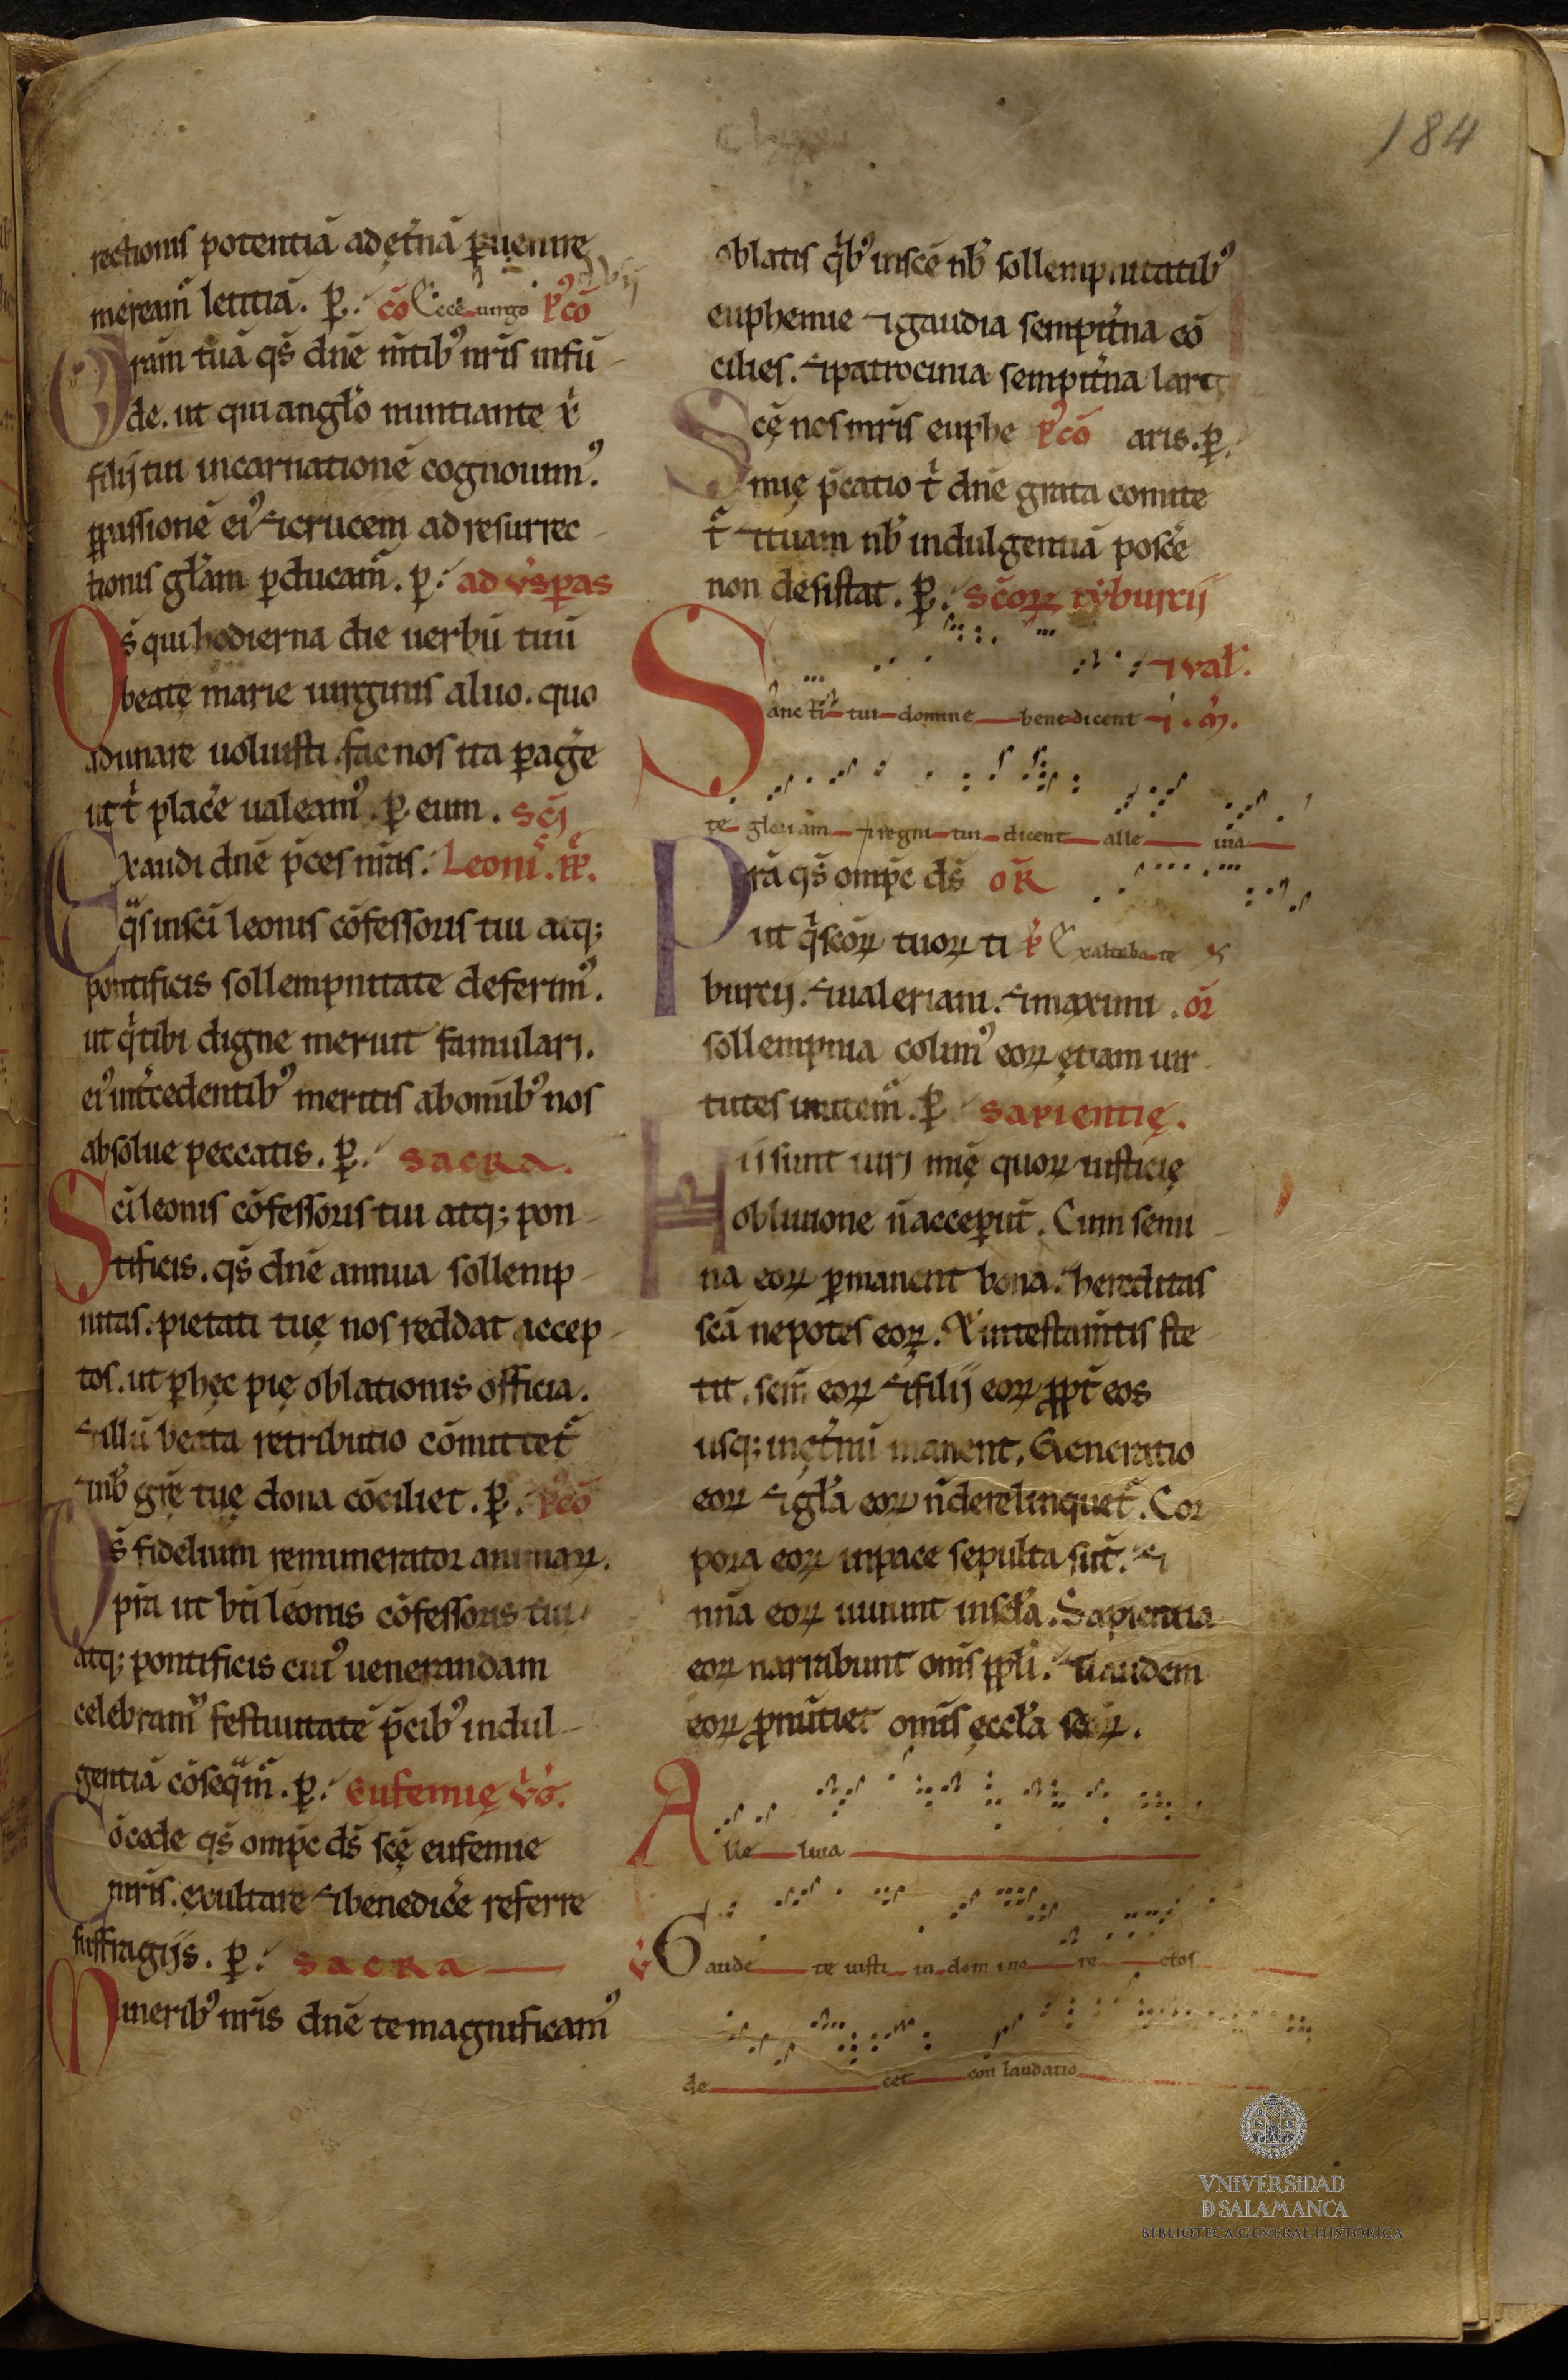 184
rectionis potentiā ad ęt̄nā ꝑuenire
meream̄ letitiā. ꝑ. cō Ecce uirgo p̄cō
Grām tuā qs̄ dn̄e m̄tibꝰ nr̄is infū-
de. ut qui angl̄o nuntiante x̄
filij tui incarnationē cognouimꝰ.
ꝑ passionē eiꝰ ⁊ crucem ad resurrec-
tionis gl̄am ꝑducam̄. ꝑ. ad ūsꝑas
Ds̄ qui hodierna die uerbū tuū
beatę marie uirginis aluo. quo
adunare uoluisti. fac nos ita ꝑaḡe
ut t̄ plac̄e ualeamꝰ. ꝑ eum. sc̄i
Exaudi dn̄e p̄ces nr̄as. Leoni. pp̄.
q̄s in sc̄i leonis cōfessoris tui atq;
pontificis sollempnitate deferimꝰ.
ut q̄ tibi digne meruit famulari.
eiꝰ int̄cedentibꝰ meritis ab om̄ibꝰ nos
absolue peccatis. ꝑ. sacra.
Sc̄i leonis cōfessoris tui atq; pon-
tificis. qs̄ dn̄e annua sollemp-
nitas. pietati tuę nos reddat accep-
tos. ut ꝑ hęc pię oblationis officia.
⁊ illū beata retributio cōmittet̄
⁊ nb̄ gr̄ę tuę dona cōciliet. ꝑ. p̄cō
Ds̄ fidelium remunerator animaꝝ.
pr̄a ut bt̄i leonis cōfessoris tui
atq; pontificis cuiꝰ uenerandam
celebramꝰ festiuitatē p̄cibꝰ indul-
gentiā cōseq̄m̄. ꝑ. Eufemię v̄ḡ.
Cōcede qs̄ omp̄c ds̄ sc̄ę eufemie
mr̄is. exultare ⁊ benedic̄e referre
suffragijs. ꝑ. sacra
Muneribꝰ nr̄is dn̄e te magnificamꝰ
oblatis q̄bꝰ in sc̄e nb̄ sollempnitatibꝰ
euphemie ⁊ gaudia sempit̄na cō
cilies. ⁊ patrocinia sempit̄na larg
Scę nos mr̄is euphe p̄cō aris. ꝑ.
mię p̄catio t̄ dn̄e grata comite
t̄ ⁊ tuam nb̄ indulgentiā posc̄e
non desistat. ꝑ. sc̄oꝝ tyburcij
⁊ val̄.
Sancti tui domine benedicent ⁊ . m̄.
te gloriam regni tui dicent alle uia
Prā qs̄ omp̄c ds̄ or̄
ut q̄ sc̄oꝝ tuoꝝ ti p̄ Exaltabo te
burcij. ⁊ ualeriani. ⁊ maximi. or̄
sollempnia colimꝰ eoꝝ ętiam uir
tutes imitem̄. ꝑ sapientię.
Hii sunt uiri mię quoꝝ iusticię
obliuione n̄ acceperūt. Cum semi
na eoꝝ ꝑmanent bona. hereditas
sc̄a nepotes eoꝝ. ⁊ in testam̄tis ste
tit. sem̄ eoꝝ ⁊ filij eoꝝ ꝓpt̄ eos
usq; in ęt̄nū manent. Generatio
eoꝝ ⁊ gl̄a eoꝝ n̄ derelinquet̄. Cor
pora eoꝝ in pace sepulta sūt. ⁊
nn̄a eoꝝ uiuunt in scl̄a. Sapientia
eoꝝ narrabunt om̄s ppl̄i. ⁊ laudem
eoꝝ ꝓnūtiet om̄is ęccl̄a sc̄oꝝ.
Alle luia
v̄ Gaude te iusti in domino re ctos
de cet con laudatio
VNiVERSiDAD
D SALAMANCA
BIBLIOTECA GENERAL HISTÓRICA